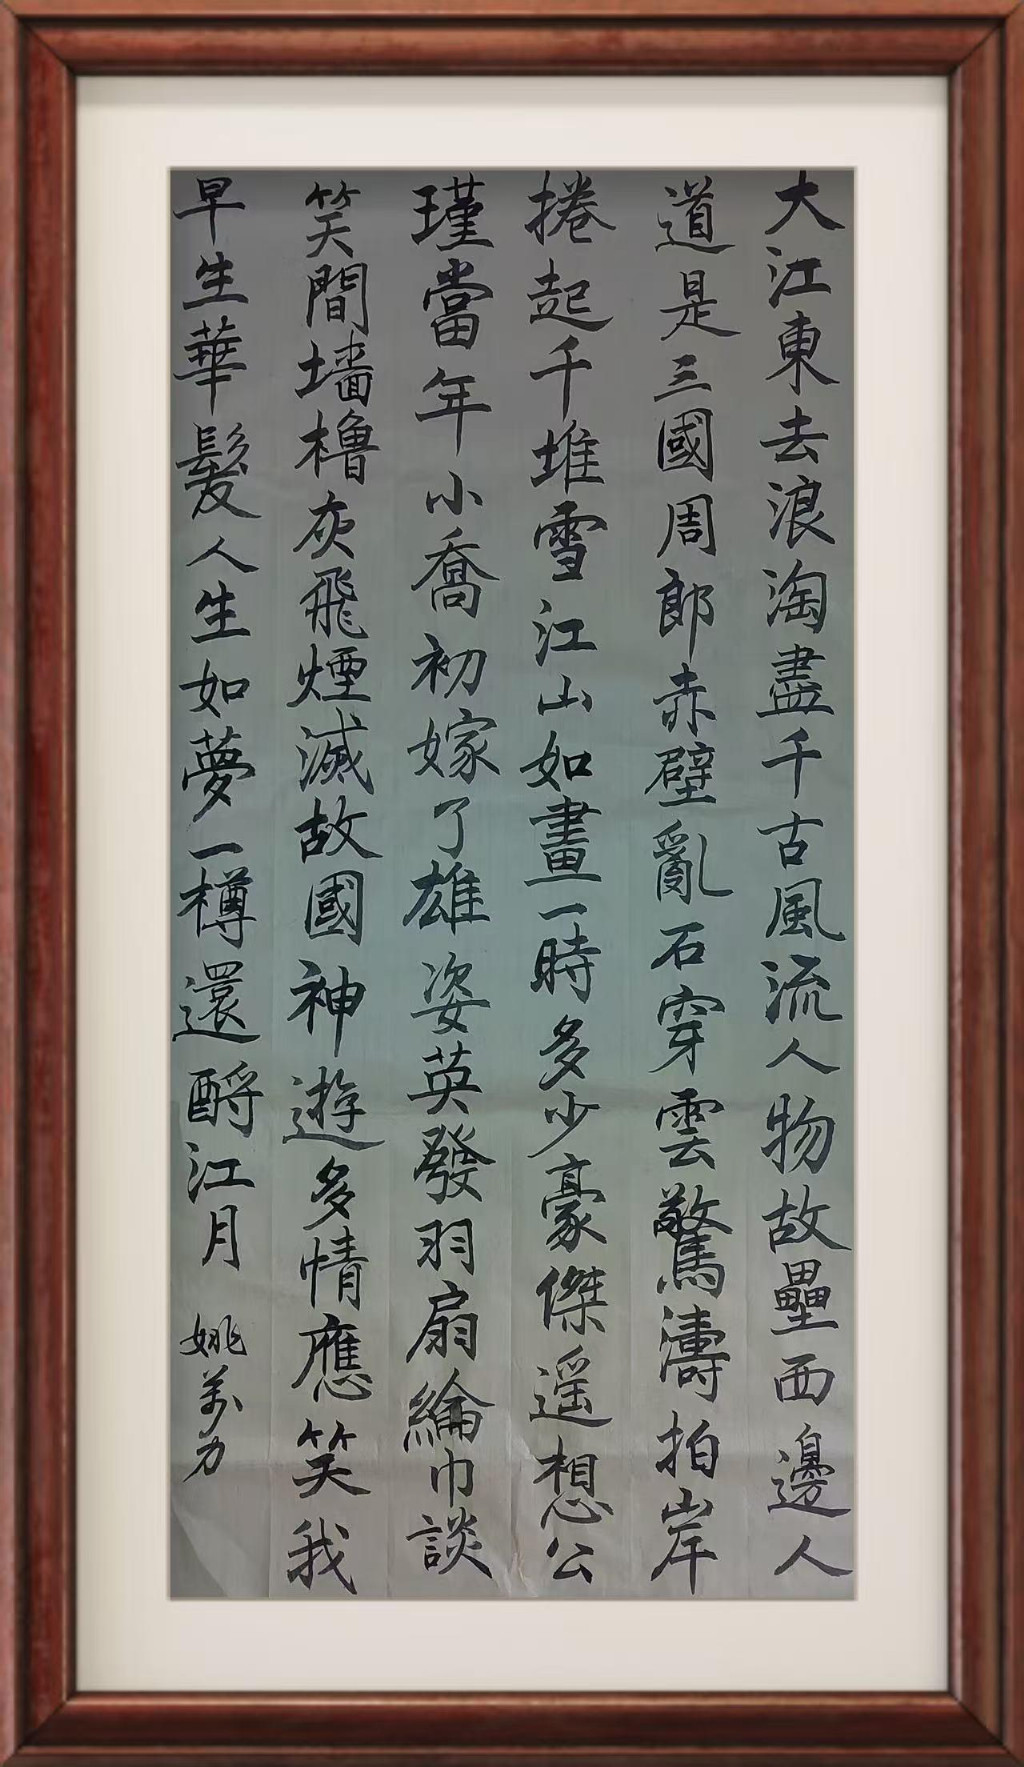 大江東去浪淘盡千古風流人物故壘西邊人
道是三國周郎赤壁亂石穿雲驚濤拍岸
捲起千堆雪江山如畫一時多少豪傑遥想公
瑾當年小喬初嫁了雄姿英發羽扇綸巾談
笑間墻櫓灰飛煙滅故國神遊多情應笑我
早生華髮人生如夢一樽還酹江月
姚萬力